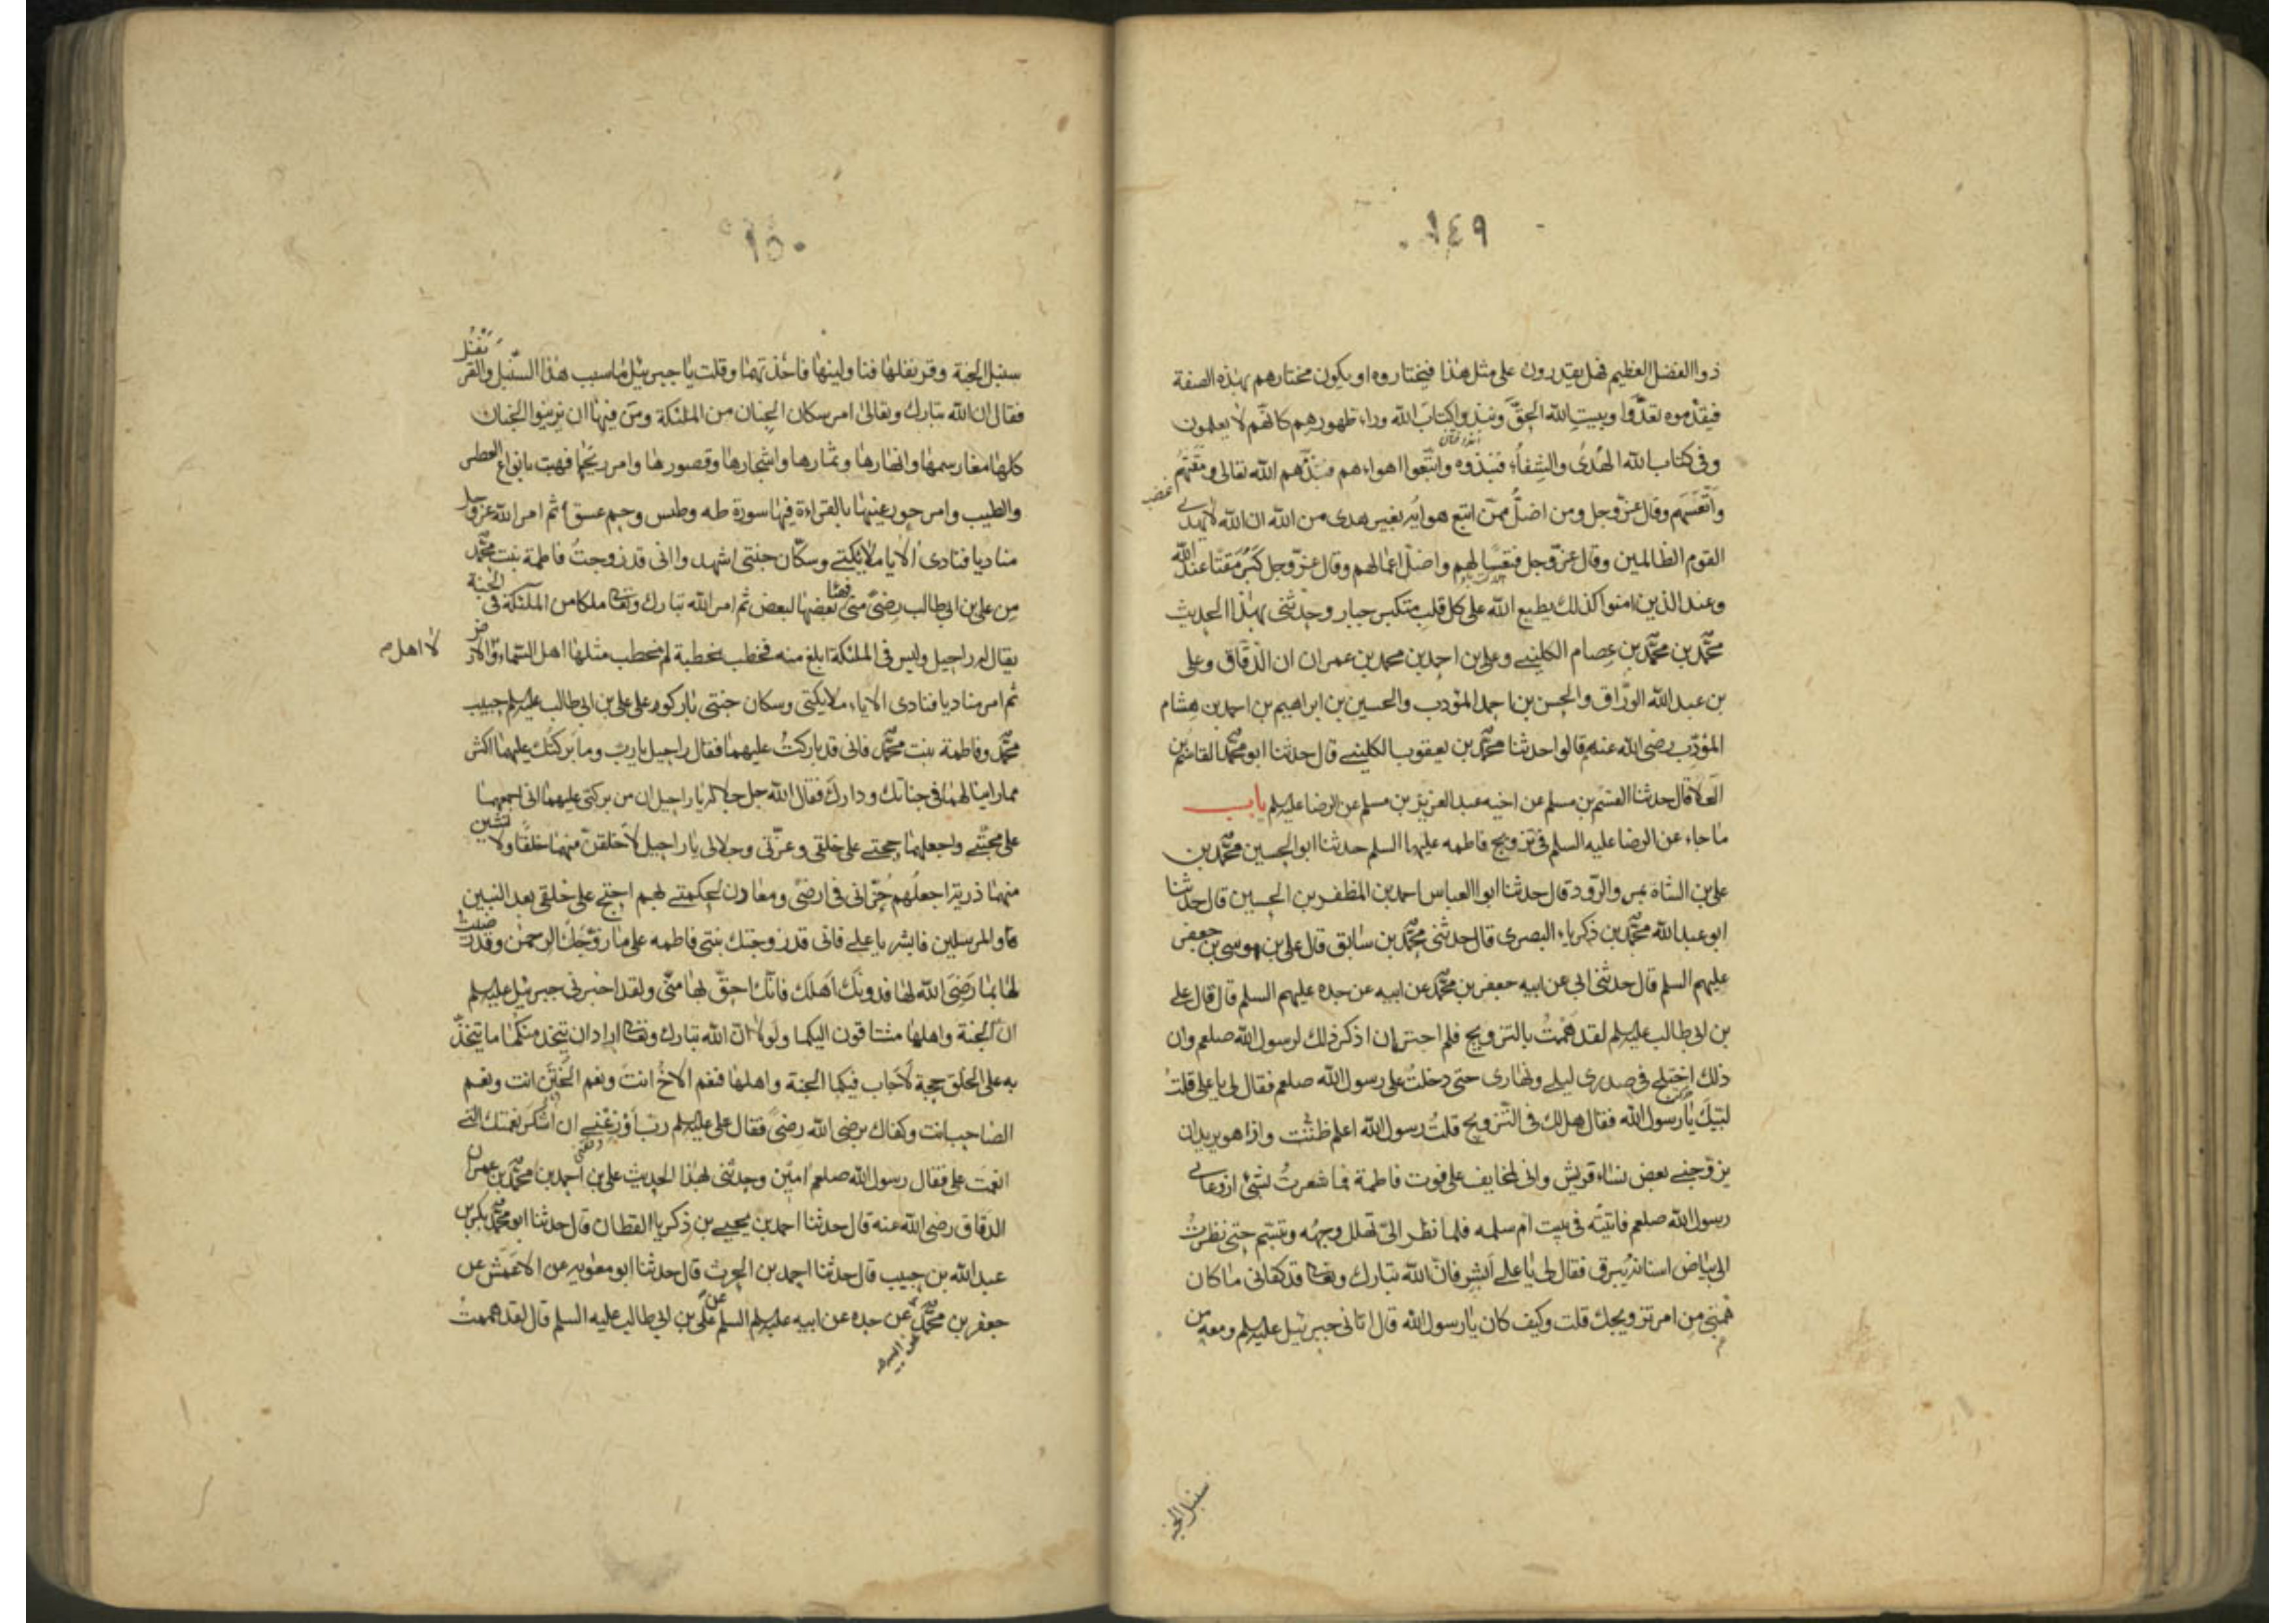 ١٤٩
ذوا الفضل العظيم فهل يقدرون على مثل هذا فيختاروه او يكون مختارهم بهذه الصفة
فيقدموه تعدّوا وبيت الله الحقّ ونبذوا كتاب الله وراء ظهورهم كانهم لا يعلمون
وفى كتاب الله الهدى والشفاء فنبذوه واتبعوا اهواءهم فذمهم الله تعالى ومقتهم
واتعسهم وقال عزّوجل ومن اضلّ ممّن اتبع هوايه بغير هدى من الله ان الله لا يهدى
القوم الظالمين وقال عزّوجل فتعسا لهم واضل اعمالهم وقال عزّوجل كبر مقتا عند الله
وعند الذين امنوا كذلك يطبع الله على كل قلب متكبر جبار وحدثنى بهذا الحديث
محمّد بن محمّد بن عصام الكلينى وعلى بن احمد بن محمد بن عمران ان الدقاق وعلى
بن عبد الله الورّاق والحسن بن احمد المؤدب والحسين بن ابراهيم بن احمد بن هشام
المؤدّب رضى الله عنهم قالوا حدثنا محمّد بن يعقوب الكلينى قال حدثنا ابو محمّد القاسم بن
العلا قال حدثنا القسم بن مسلم عن اخيه عبد العزيز بن مسلم عن الرضا عليه السلم باب
ما جاء عن الرضا عليه السلم فى تزويج فاطمه عليها السلم حدثنا ابو الحسين محمّد بن
على بن الشاه بمرو الرّود قال حدثنا ابوا العباس احمد بن المظفر بن الحسين قال حدثنا
ابو عبد الله محمّد بن ذكرياء البصرى قال حدثنى محمّد بن سابق قال على بن موسى بن جعفر
عليهم السلم قال حدثنى ابى عن ابيه جعفر بن محمّد عن ابيه عن جده عليهم السلم قال قال على
بن ابى طالب عليه السلم لقد هممتُ بالتزويج فلم اجتر ان اذكر ذلك لرسول الله صلعم وان
ذلك اختلج فى صدرى ليلى ونهارى حتى دخلتُ على رسول الله صلعم فقال لى يا على قلتُ
لبّيك يا رسول الله فقال هل لك فى التّزويج قلتُ رسول الله اعلم ظننت واذا هو يريد ان
يزوّجنى بعض نساء قريش وانى لخايف على فوت فاطمة فما شعرتُ لشئ اذ دعانى
رسول الله صلعم فاتيتُه فى بيت ام سلمه فلما نظر الىّ تهلل وجهه وتبسّم حتى نظرتُ
الى بياض اسنانه يبرق فقال لى يا على أبشر فانّ الله تبارك وتعالى قد كفانى ما كان
همّنى من امر تزويجك قلت وكيف كان يا رسول الله قال اتانى جبرئيل عليه السلم ومعه من
سنبل الجنه
١٥٠
سنبل الجنة وقرنفلها فناولينها فاخذتهما وقلت يا جبرئيل ما سبب هذا السّنبل والقرنفل
فقال ان الله تبارك وتعالى امر سكان الجنان من الملئكة ومن فيها ان يزينوا الجنان
كلها مغارسها وانهارها وثمارها واشجارها وقصورها وامر ريحها فهبت بانواع العطر
والطيب وامر حور عينها بالقراءة فيها سورة طه وطس وحم عسق ثم امر الله عزّوجل
مناديا فنادى الا يا ملايكتى وسكّان جنتى اشهدوا انى قد زوجتُ فاطمة بنت محمّد
من على بن ابى طالب رضىً منى بعضها لبعض ثم امر الله تبارك وتعالى ملكا من الملئكة فى الجنة
يقال له راجيل وليس فى الملئكة ابلغ منه فخطب بخطبة لم يخطب مثلها اهل السماء ولا الارض
لا اهل م
ثم امر مناديا فنادى الا يا ملايكتى وسكان جنتى باركوا على على بن ابى طالب عليه السلم حبيب
محمّد وفاطمة بنت محمّد فانى قد باركتُ عليهما فقال راجيل يا ربّ وما بركتك عليهما اكثر
مما راينا لهما فى جناتك ودارك فقال الله جل جلاله يا راجيل ان من بركتى عليهما انى اجمعهما
على محبّتى واجعلهما حجتى على خلقى وعزّتى وجلالى يا راجيل لاخلقنّ منهما خلقًا ولانشين
منهما ذرية اجعلهم خزّانى فى ارضى ومعادن لحكمتى بهم احتج على خلقى بعد النبين
والمرسلين فابشر يا على فانى قد زوجتك بنتى فاطمه على ما زوّجك الرحمن وقد رضيت
لها بما رَضِىَ الله لها فدونك اَهلَك فانّك احقّ بها منّى ولقد اخبرنى جبرئيل عليه السلم
انّ الجنة واهلها مشتاقون اليكما ولولا انّ الله تبارك وتعالى اراد ان يتخذ منكما ما يتخذ
به على الخلق حجة لأجاب فيكما الجنة واهلها فنعم الاخُ انت ونعم الختن انت ونعم
الصاحب انت وكفاك برضى الله رضىً فقال على عليه السلم ربّ اَوْزِعْنى ان اشكر نعمتك التى
انعمت على فقال رسول الله صلعم امين وحدثنى بهذا الحديث على بن احمد بن محمّد بن عمران
الدقاق رضى الله عنه قال حدثنا احمد بن يحيى بن ذكريا القطان قال حدثنا ابو محمّد بكر بن
عبد الله بن حبيب قال حدثنا احمد بن الحرث قال حدثنا ابو معوية عن الاعمش عن
جعفر بن محمّد عن جده عن ابيه عليهم السلم عن على بن ابى طالب عليه السلم قال لقد هممتُ
عن ابيه